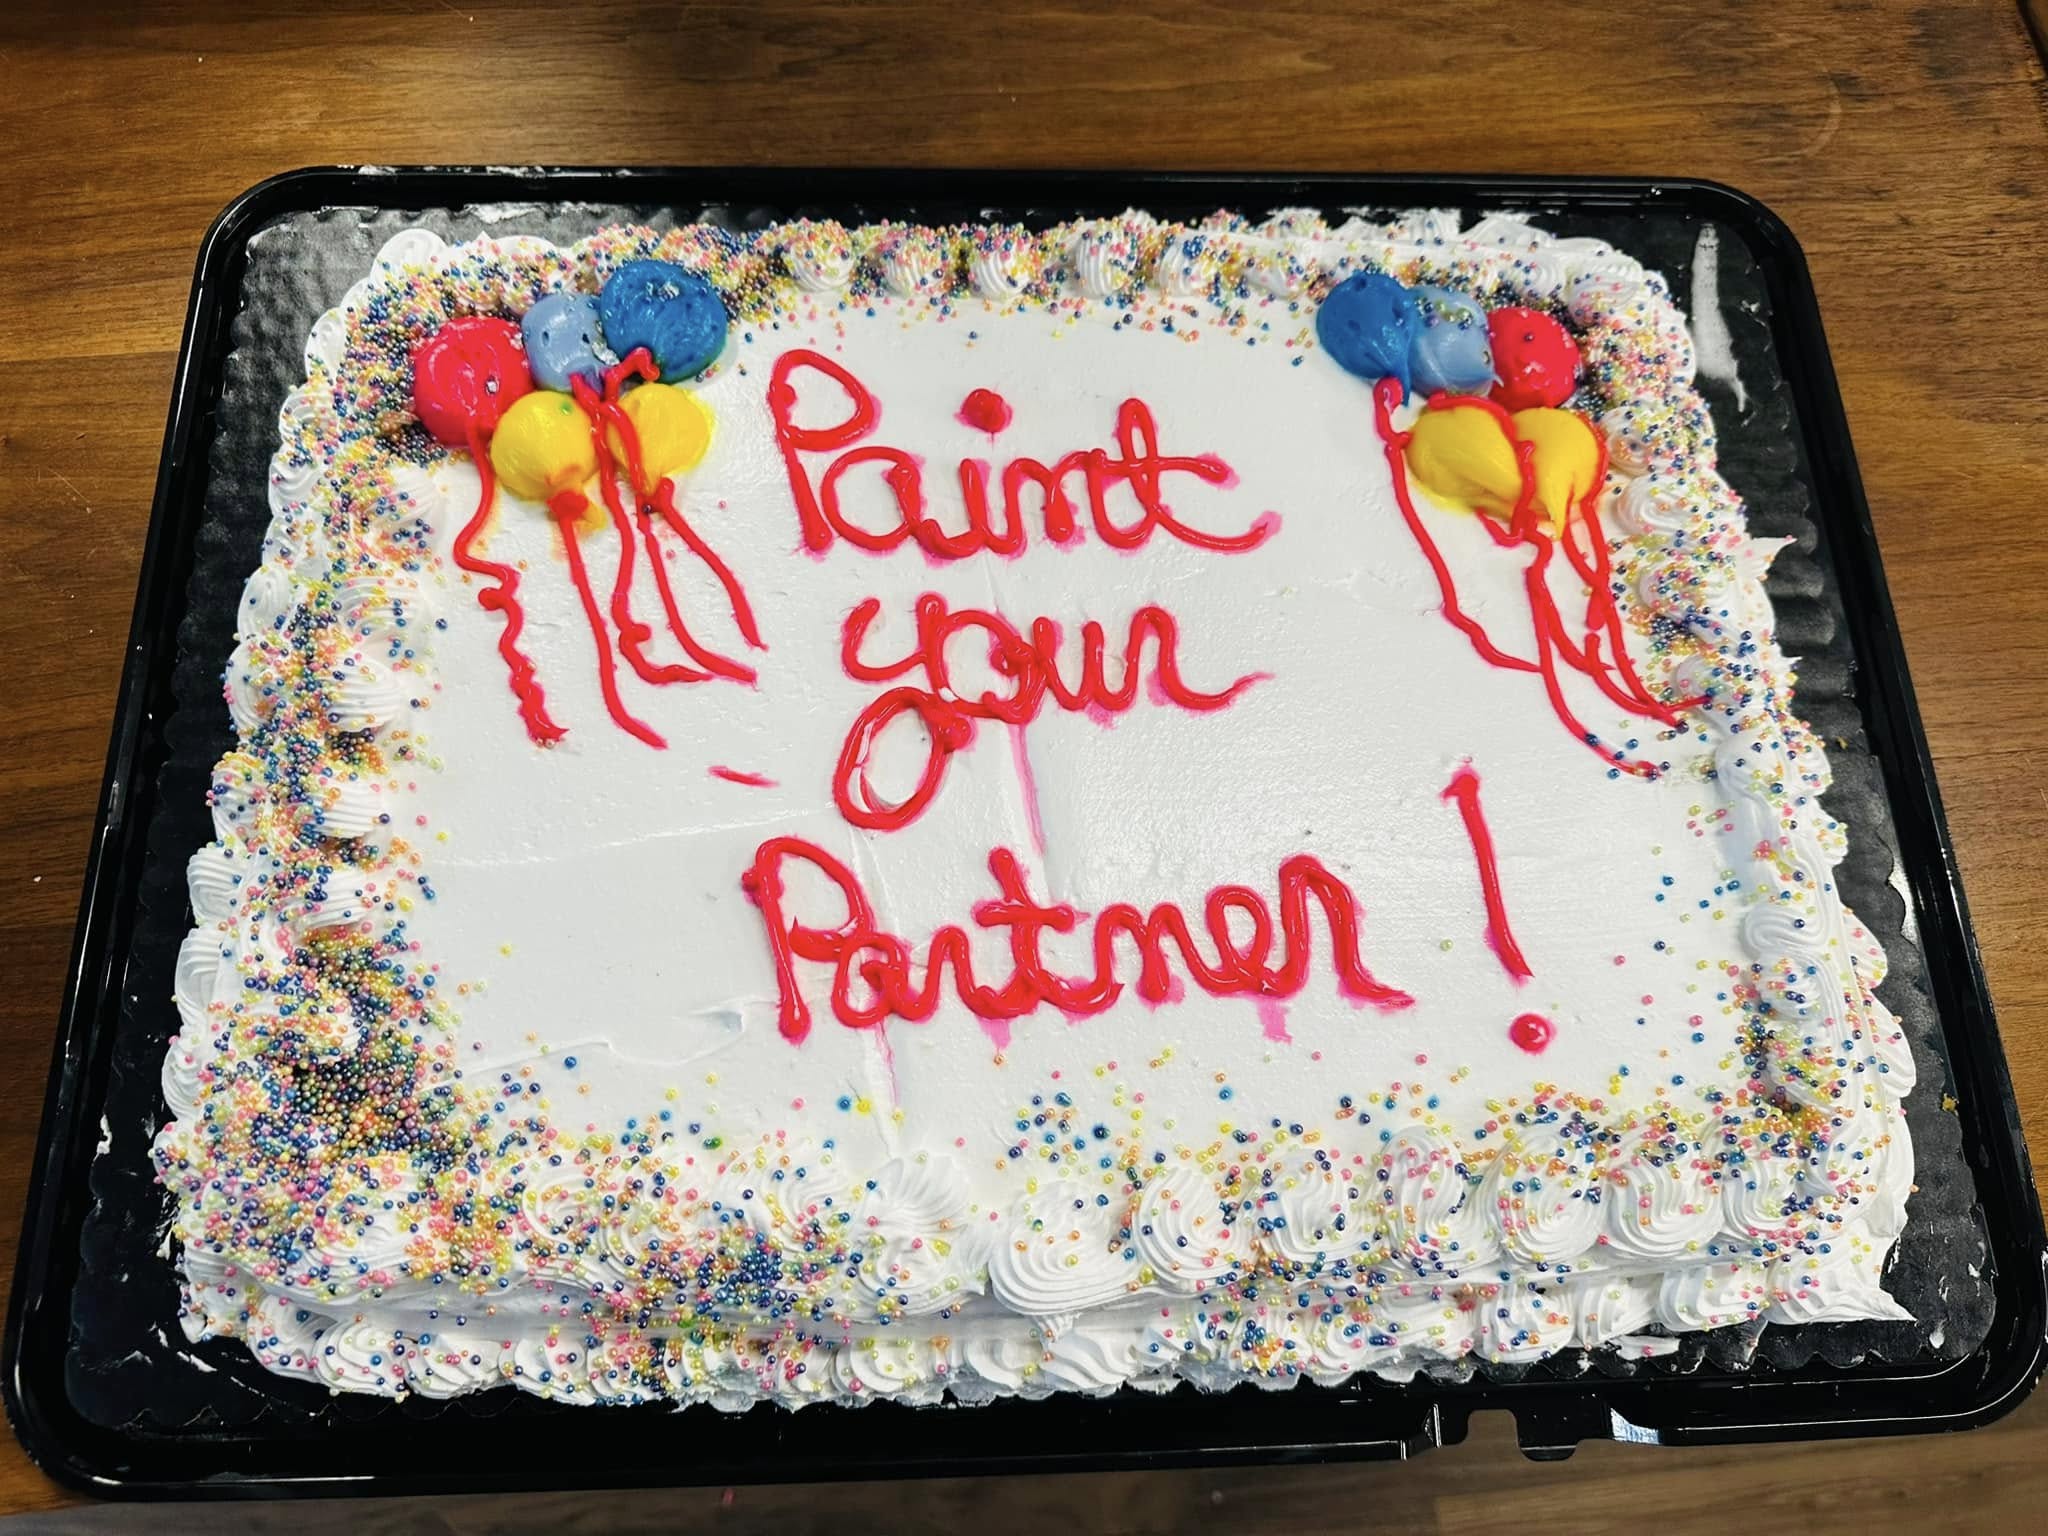 Paint
your
Partner!